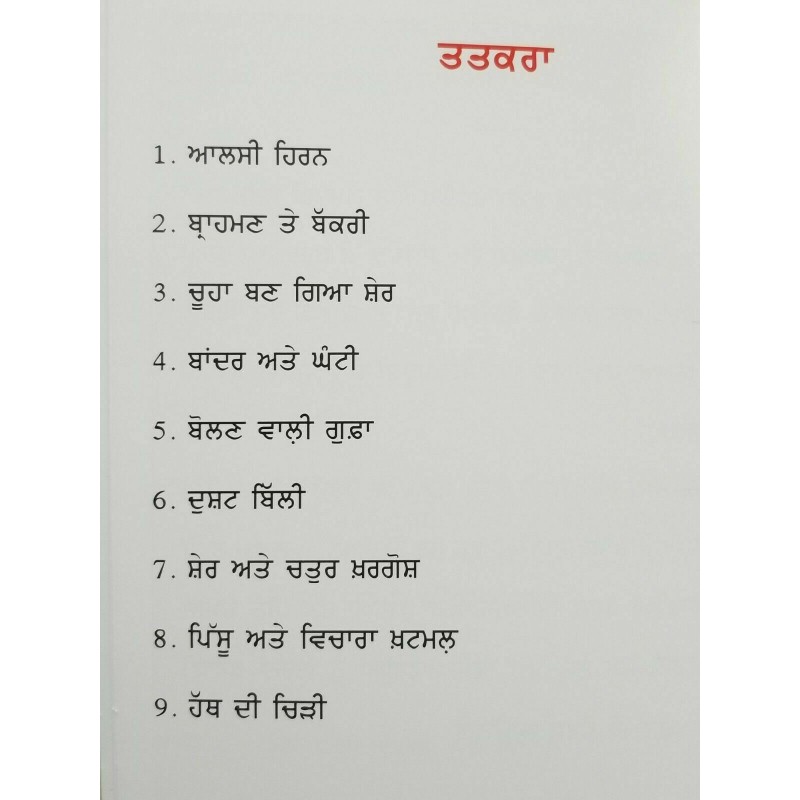 ਤਤਕਰਾ
1. ਆਲਸੀ ਹਿਰਨ
2. ਬ੍ਰਾਹਮਣ ਤੇ ਬੱਕਰੀ
3. ਚੂਹਾ ਬਣ ਗਿਆ ਸ਼ੇਰ
4. ਬਾਂਦਰ ਅਤੇ ਘੰਟੀ
5. ਬੋਲਣ ਵਾਲ਼ੀ ਗੁਫ਼ਾ
6. ਦੁਸ਼ਟ ਬਿੱਲੀ
7. ਸ਼ੇਰ ਅਤੇ ਚਤੁਰ ਖ਼ਰਗੋਸ਼
8. ਪਿੱਸੂ ਅਤੇ ਵਿਚਾਰਾ ਖ਼ਟਮਲ਼
9. ਹੱਥ ਦੀ ਚਿੜੀ